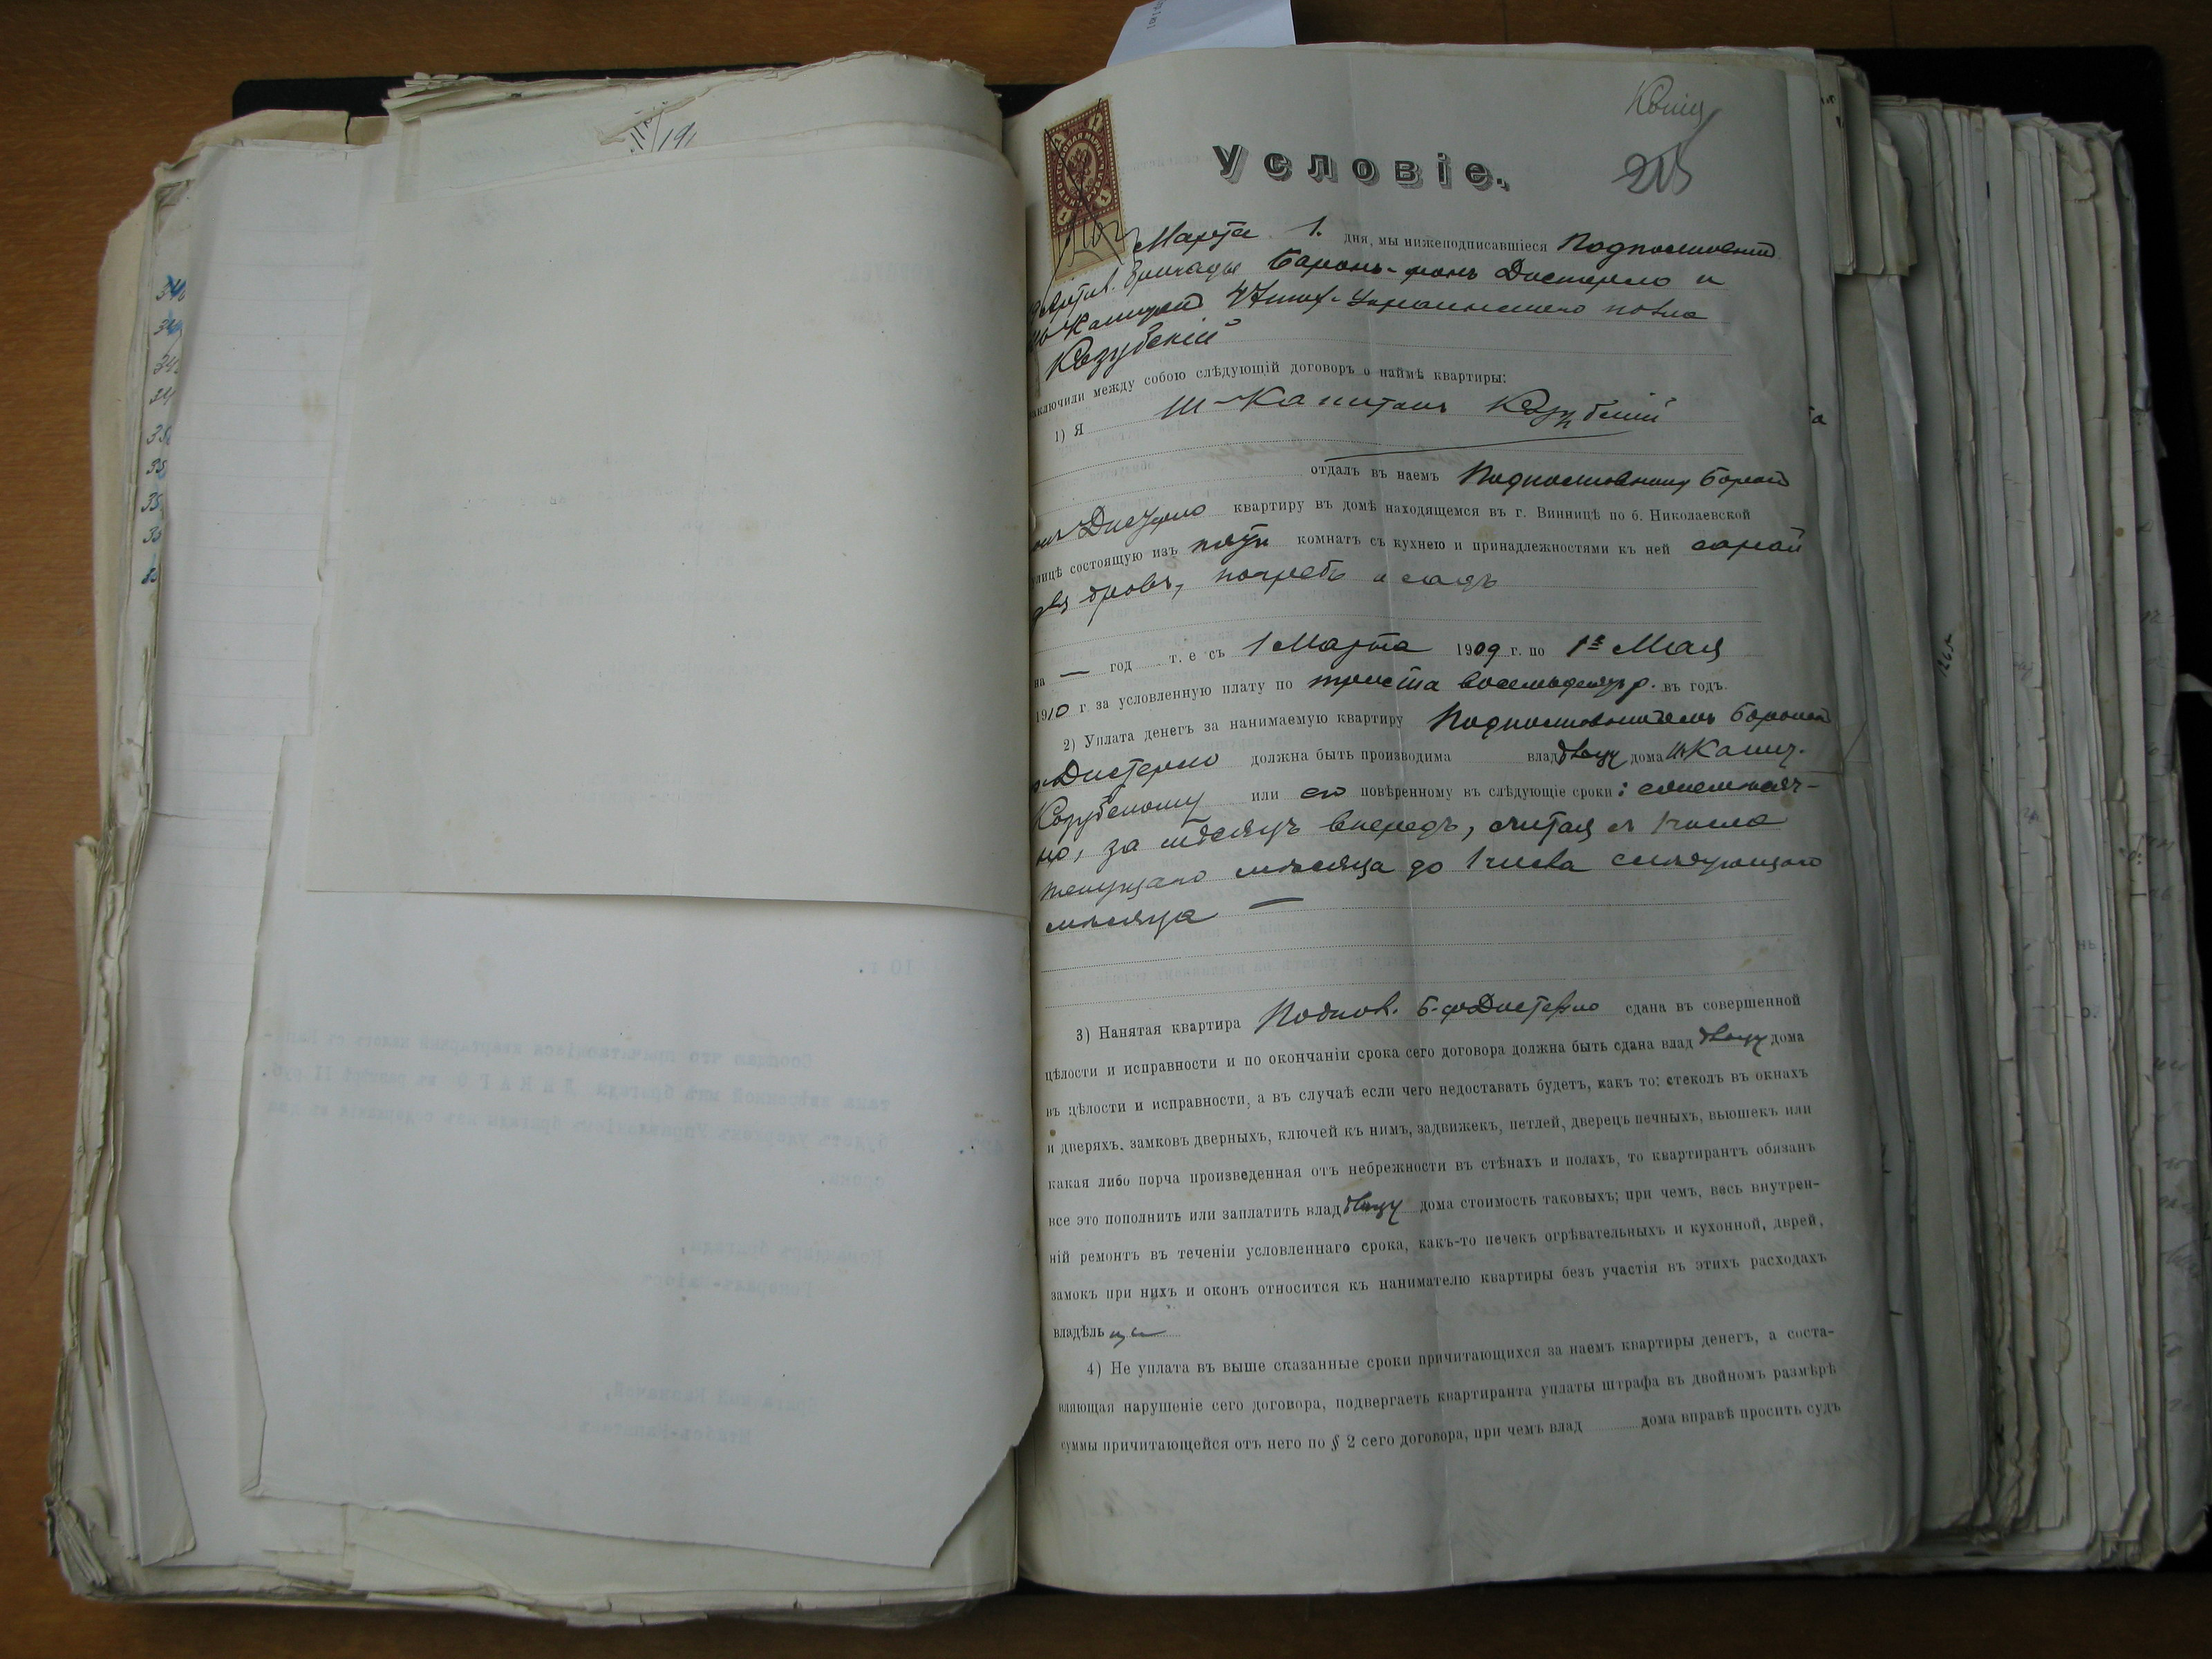 Копія
215
Условіе.
Марта 1. дня, мы нижеподписавшіеся Подполковникъ
Артил. бригады Баронъ-фонъ Дистерло и
Капитанъ 47 пех. Украинскаго полка
Козубскій
заключили между собою слѣдующій договоръ о наймѣ квартиры:
1) Я Ш-Капитанъ Козубскій
отдалъ въ наемъ Подполковнику Барону
фонъ Дистерло квартиру въ домѣ находящемся въ г. Винницѣ по б. Николаевской
улицѣ состоящую изъ пяти комнатъ съ кухнею и принадлежностями къ ней сарай
для дровъ, погребъ и садъ
на — год т. е съ 1 Марта 1909 г. по 1е Мая
1910 г. за условленную плату по триста восемьдесятъ р. въ годъ.
2) Уплата денегъ за нанимаемую квартиру Подполковникомъ Барономъ
ф-Дистерло должна быть производима владѣльцу дома Ш-Капит.
Козубскому или его повѣренному въ слѣдующіе сроки: ежемѣсяч-
но, за мѣсяцъ впередъ, считая съ 1 числа
текущаго мѣсяца до 1 числа слѣдующаго
мѣсяца —
3) Нанятая квартира Подполк. Б-ф-Дистерло сдана въ совершенной
цѣлости и исправности и по окончаніи срока сего договора должна быть сдана владѣльцу дома
въ цѣлости и исправности, а въ случаѣ если чего недоставать будетъ, какъ то: стеколъ въ окнахъ
и дверяхъ, замковъ дверныхъ, ключей къ нимъ, задвижекъ, петлей, дверецъ печныхъ, вьюшекъ или
какая либо порча произведенная отъ небрежности въ стѣнахъ и полахъ, то квартирантъ обязанъ
все это пополнить или заплатить владѣльцу дома стоимость таковыхъ; при чемъ, весь внутрен-
ній ремонтъ въ теченіи условленнаго срока, какъ-то печекъ огрѣвательныхъ и кухонной, дврей,
замокъ при нихъ и оконъ относится къ нанимателю квартиры безъ участія въ этихъ расходахъ
владѣльца
4) Не уплата въ выше сказанные сроки причитающихся за наемъ квартиры денегъ, а соста-
вляющая нарушеніе сего договора, подвергаетъ квартиранта уплаты штрафа въ двойномъ размѣрѣ
суммы причитающейся отъ него по § 2 сего договора, при чемъ влад дома вправѣ просить судъ